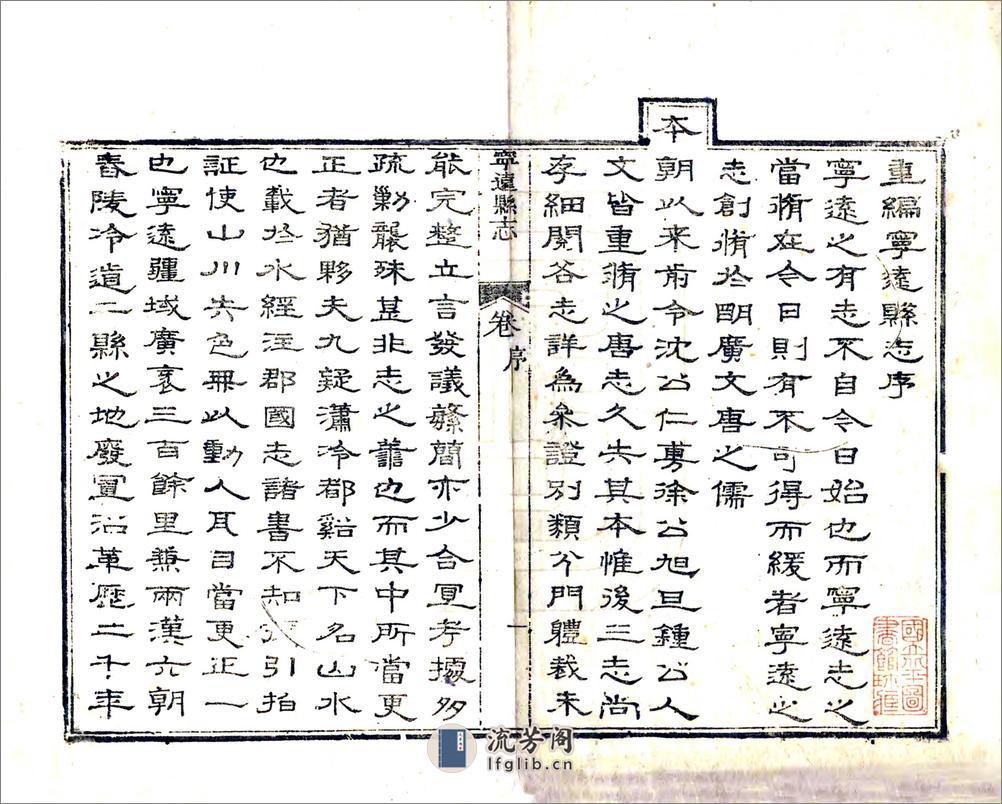 重編寧遠縣志序
寧遠之有志不自今日始也而寧遠志之
當脩在今日則有不可得而緩者寧遠之
志創脩於明廣文唐之儒
本朝以來前令沈公仁旉徐公旭旦鍾公人
文皆重脩之唐志久失其本惟後三志尚
存細閱各志詳為參證別類分門體裁未
寧遠縣志 卷 序 一
能完整立言發議繁簡亦少合宜考據多
疏勦襲殊甚非志之舊也而其中所當更
正者猶夥夫九疑瀟泠都谿天下名山水
也載於水經注郡國志諸書不知援引指
証使山川失色無以動人耳目當更正一
也寧遠疆域廣袤三百餘里兼兩漢六朝
舂陵泠道二縣之地廢置沿革歷二千年
國立北平圖
書館收藏
流芳阁
lfglib.cn